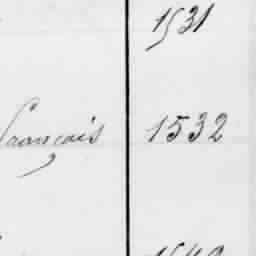 1531
français 1532